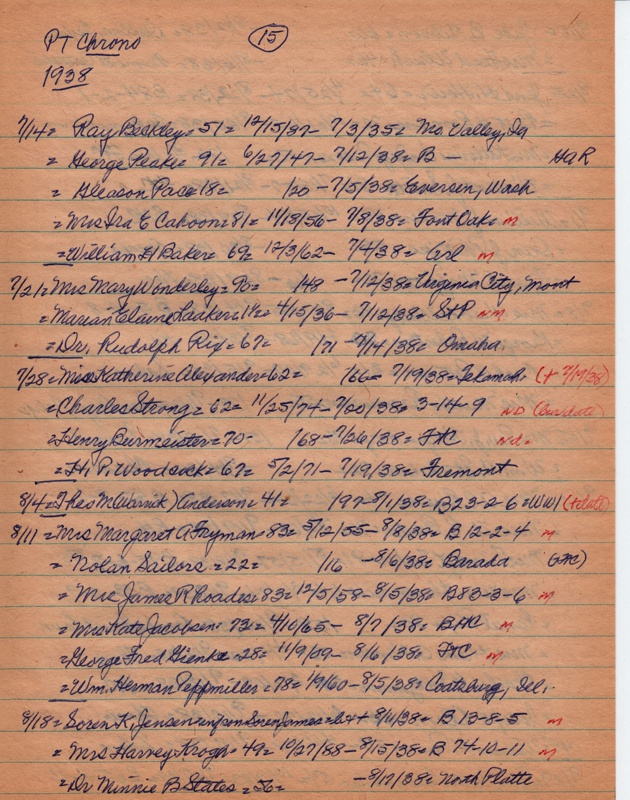 PT Chrono 15
1938
7/14 = Ray Beckley = 51 = 12/15/87 - 7/3/35 = Mo. Valley, Ia
= George Peake = 91 = 6/27/47 - 7/12/38 = B - H&R
= Gleason Pace 18 = /20 - 7/5/38 = Everson, Wash
= Mrs Ira E Cahoon = 81 = 11/18/56 - 7/8/38 = Font Oak = M
= William H Baker = 69 = 12/3/62 - 7/4/38 = M
7/21 = Mrs Mary Wonderley = 90 = 148 - 7/12/38 = Virginia City, Mont
= Marian Elaine Laaker = 4/15/36 - 7/12/38 = St P NM
= Dr. Rudolph Rix = 67 = /71 - 7/14/38 = Omaha
7/28 = Miss Katherine Alexander = 62 = /66 = 7/19/38 = Tekamah (+ 7/19/38)
= Charles Strong = 62 = 11/25/74 - 7/20/38 = 3-14-9 ND
= Henry Burmeister = 70 - /68 - 7/26/38 = N.D.
= H. P. Woodcock = 67 = 5/2/71 - 7/19/38 = Fremont
8/4 = Theo M( Warrick) Anderson = 41 = 197 - 8/1/38 = B 23-2-6 = WW1
8/11 = Mrs Margaret A Fryman = 83 = 5/12/55 - 8/8/38 = B 12-2-4 M
= Nolan Sailors = 22 = /16 - 8/6/38 = Barada
= Mrs James R Rhoades = 83 = 12/5/58 - 8/5/38 = B 83-3-6 M
= Mrs Kate Jacobsen = 73 = 4/10/65 - 8/7/38 = M
= George Fred Gienke = 28 = 11/9/09 - 8/6/38 = M
= Wm. Herman Peppmiller = 78 = 1/9/60 - 8/5/38 = Coatsburg, Ill.
8/18 = Soren K. Jensen Soren James = 64 + 8/11/38 = B 13-8-5 M
= Mrs Harvey Krogh = 49 = 10/27/88 - 8/15/38 = B 74-10-11 M
= Dr Minnie B States = 56 = - 8/17/38 = North Platte